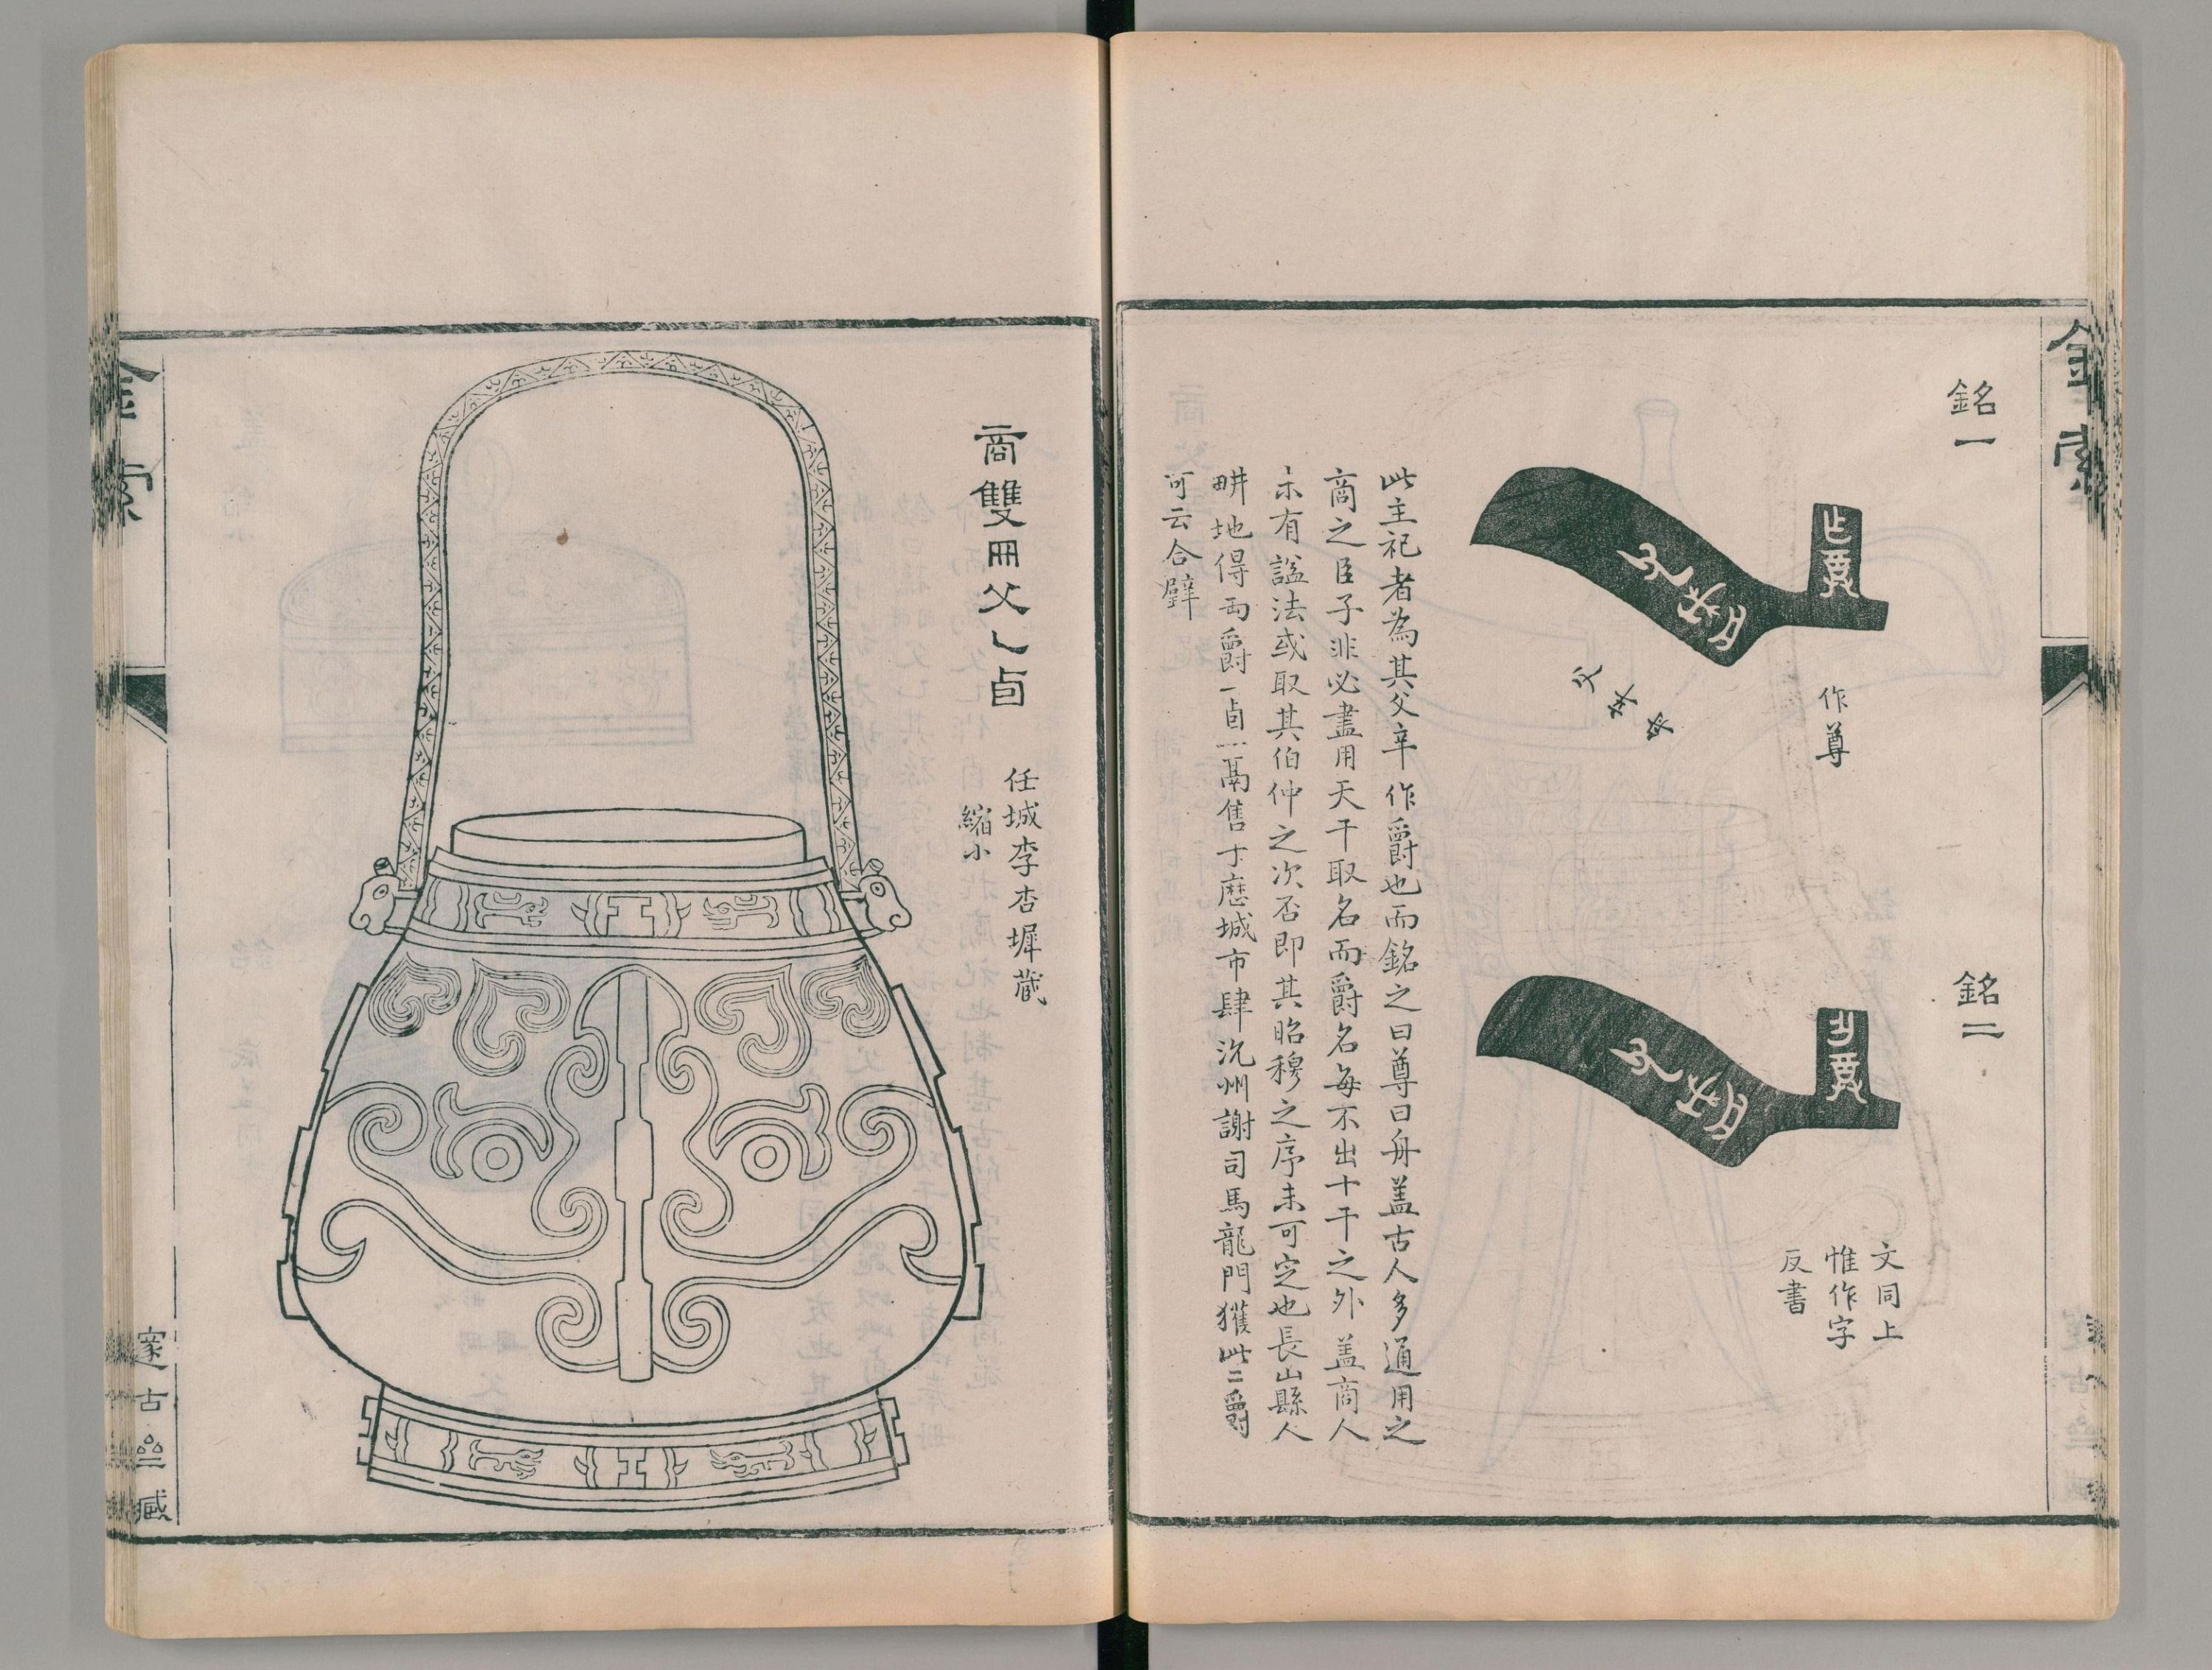 金索
銘一
作尊
父辛舟
銘二
文同上
惟作字
反書
此主祀者為其父辛作爵也而銘之曰尊曰舟盖古人多通用之
商之臣子非必盡用天干取名而爵名每不出十干之外盖商人
未有諡法或取其伯仲之次否即其昭穆之序未可定也長山縣人
畊地得兩爵一卣一鬲售于歷城市肆沇州謝司馬龍門獲此二爵
可云合璧
商雙冊父乙卣
任城李杏墀藏
縮小
金索
邃古 臧